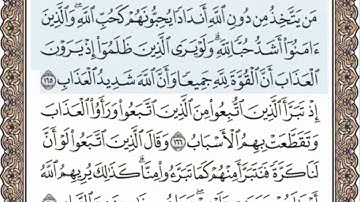 مَن يَتَّخِذُ مِن دُونِ اللَّهِ أَندَادًا يُحِبُّونَهُمْ كَحُبِّ اللَّهِ ۖ وَالَّذِينَ
ءَامَنُوا أَشَدُّ حُبًّا لِّلَّهِ ۗ وَلَوْ يَرَى الَّذِينَ ظَلَمُوا إِذْ يَرَوْنَ
الْعَذَابَ أَنَّ الْقُوَّةَ لِلَّهِ جَمِيعًا وَأَنَّ اللَّهَ شَدِيدُ الْعَذَابِ ١٦٥
إِذْ تَبَرَّأَ الَّذِينَ اتُّبِعُوا مِنَ الَّذِينَ اتَّبَعُوا وَرَأَوُا الْعَذَابَ
وَتَقَطَّعَتْ بِهِمُ الْأَسْبَابُ ١٦٦ وَقَالَ الَّذِينَ اتَّبَعُوا لَوْ أَنَّ
لَنَا كَرَّةً فَنَتَبَرَّأَ مِنْهُمْ كَمَا تَبَرَّءُوا مِنَّا ۗ كَذَٰلِكَ يُرِيهِمُ اللَّهُ